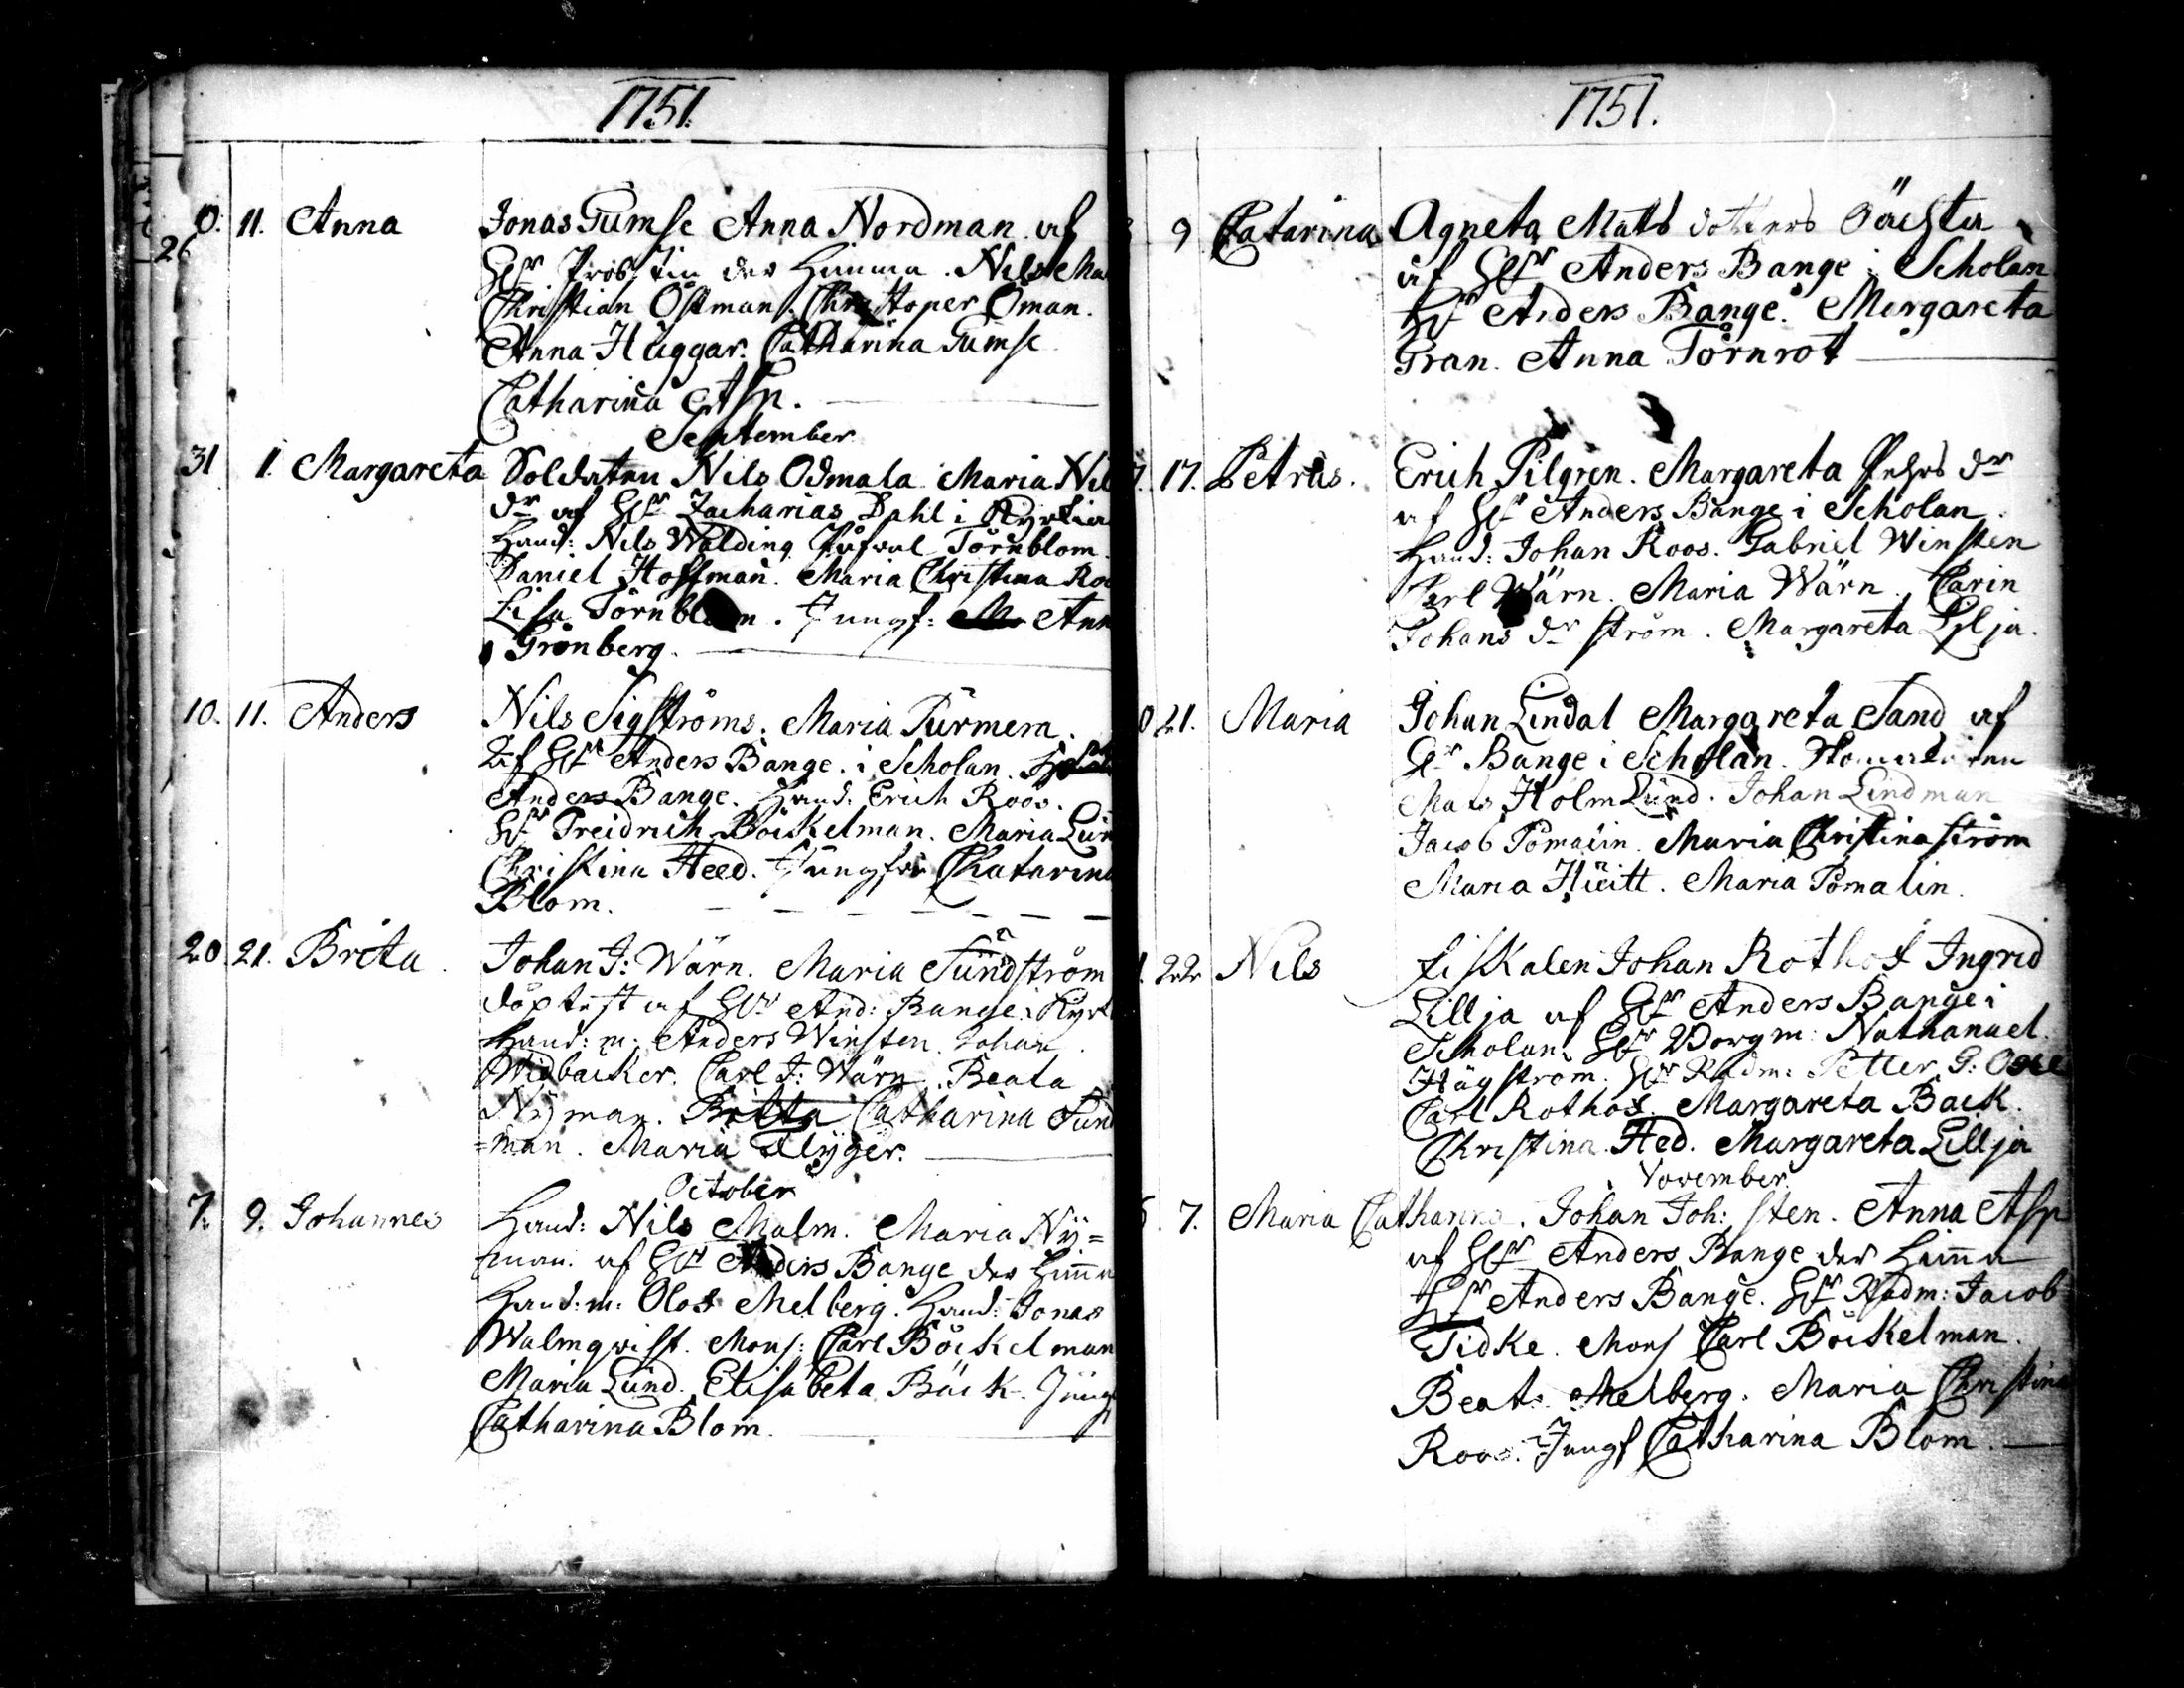 1751.
10. 11. Anna Jonas Tumse Anna Nordman af
26 H:r Probstin der Hemma. Nils Ma
Christian Östman. Christoper Öman.
Anna Huggar. Catharina Tumse
Catharina Asp.
September
31 1. Margareta Soldaten Nils Odmala Maria Nil
d:r af H:r Zacharias Dahl i Kyrkia
Hand: Nils Walding Törnblom.
Daniel Hoffman. Maria Christina Roo
Lisa Törnblom. Jungf: Ann
Grönberg.
10. 11. Anders Nils Sigströms. Maria Turmera.
af H:r Anders Bange. i Scholan.
Anders Bange. Hand: Erich Roos.
H:r Freidrich Böckelman. Maria Lun
Christina Heed. Jungfru Chatarina
Blom.
20. 21. Brita Johan J: Wärn. Maria Sundström
döptest af H:r And: Bange i Kyrk
Hand: m: Anders Winsten. Johan
Widbacker. Carl J: Wärn. Beata
Nyman. Britta Catharina Sund
=man. Maria Flyger.
October
7. 9. Johannes Hand: Nils Malm. Maria Ny=
man. af H:r Anders Bange der Hemma
Hand: m: Olof Melberg. Hand: Jonas
Walmqwist. Mons: Carl Böckelman
Maria Lund. Elisabeta Bäck. Jungf
Catharina Blom.
1751.
9 Catarina Agneta Mats dotters Oächta
af H:r Anders Bange i Scholan
H:r Anders Bange. Margareta
Gran. Anna Törnrot
17. Petrus. Erich Pilgren. Margareta Pehrs d:r
af H:r Anders Bange i Scholan.
Hand: Johan Roos. Gabriel Winsten
Carl Wärn. Maria Wärn. Carin
Johans d:r ström. Margareta Lilja.
21. Maria Johan Lindal Margareta Sand af
H:r Bange i Scholan.
Mats Holm Lund. Johan Lindman
Jacob Pomalin. Maria Christina ström
Maria Huitt. Maria Pomalin.
22 Nils Fiskalen Johan Rothof Ingrid
Lillja af H:r Anders Bange i
Scholan. H:r Borgm: Nathanael
Hägström. H:r Rådm: Petter G:
Carl Rothof. Margareta Back.
Christina Hed. Margareta Lillja
November
7. Maria Catharina. Johan Joh: sten. Anna Asp
af H:r Anders Bange der Hemma
H:r Anders Bange. H:r Rådm: Jacob
Tidke. Mons Carl Böckelman.
Beat: Melberg. Maria Christina
Roos. Jungf Catharina Blom.